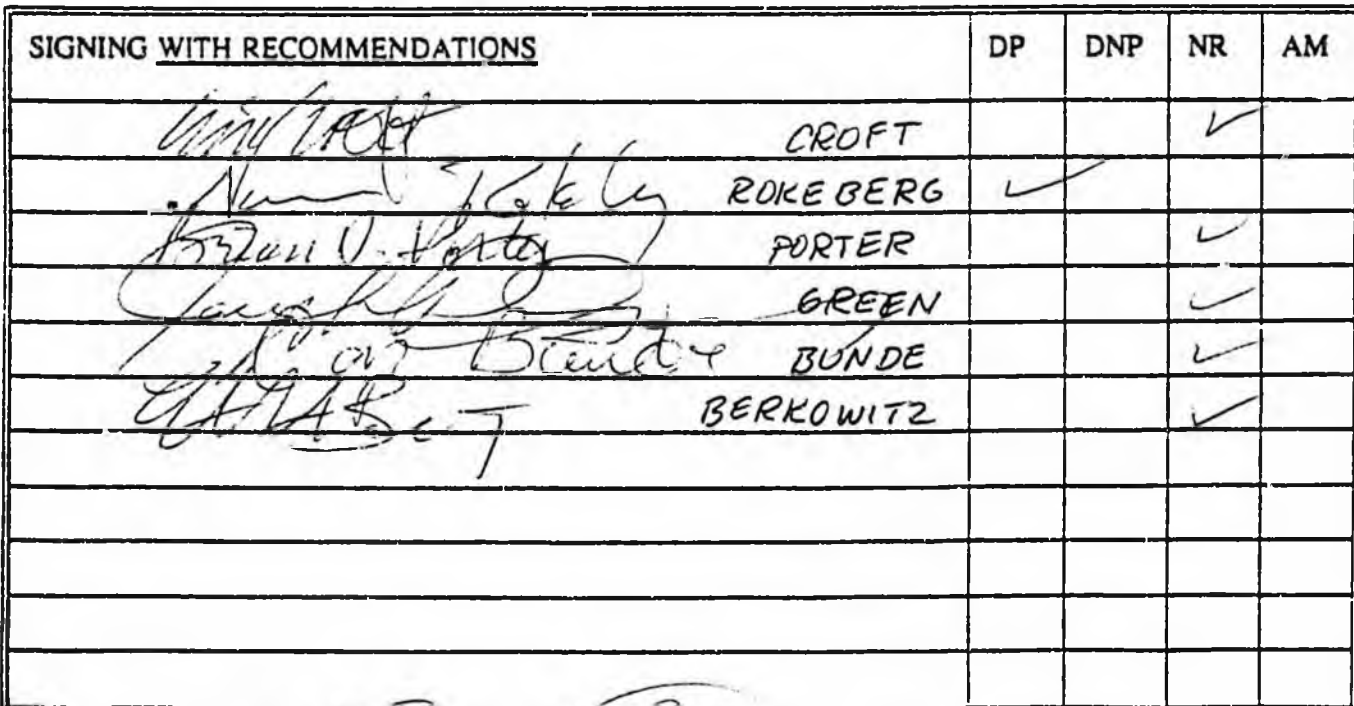 SIGNING WITH RECOMMENDATIONS DP DNP NR AM
CROFT ✓
ROKEBERG ✓
Brian D. Porter PORTER ✓
GREEN ✓
Bunde BUNDE ✓
BERKOWITZ ✓